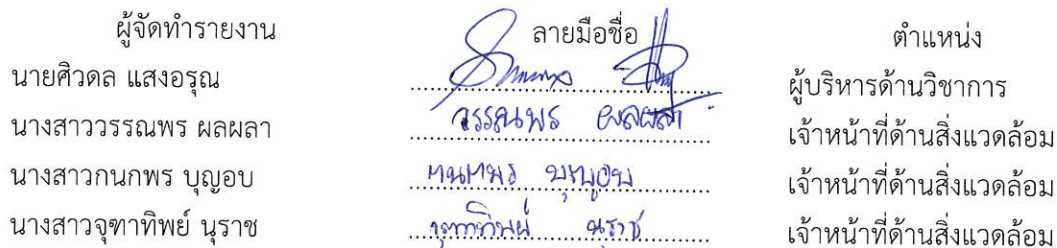 ผู้จัดทำรายงาน ลายมือชื่อ ตำแหน่ง
นายศิวดล แสงอรุณ ผู้บริหารด้านวิชาการ
นางสาววรรณพร ผลผลา วรรณพร ผลผลา เจ้าหน้าที่ด้านสิ่งแวดล้อม
นางสาวกนกพร บุญอบ กนกพร บุญอบ เจ้าหน้าที่ด้านสิ่งแวดล้อม
นางสาวจุฑาทิพย์ นุราช จุฑาทิพย์ นุราช เจ้าหน้าที่ด้านสิ่งแวดล้อม